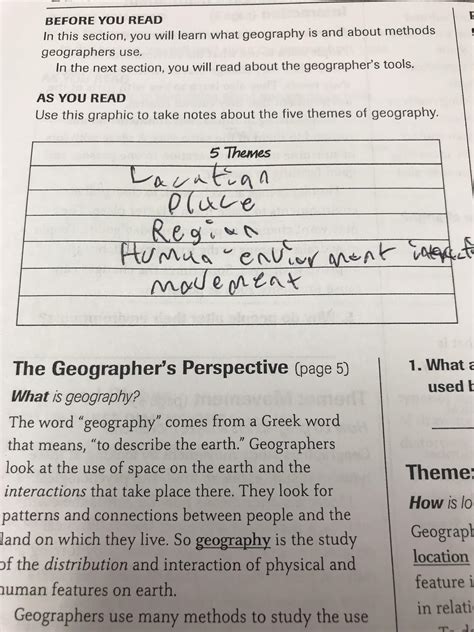 BEFORE YOU READ
In this section, you will learn what geography is and about methods
geographers use.
In the next section, you will read about the geographer's tools.
AS YOU READ
Use this graphic to take notes about the five themes of geography.
5 Themes
Lacatian
Place
Region
Human - enviorment
movement
The Geographer's Perspective (page 5)
What is geography?
The word "geography" comes from a Greek word
that means, "to describe the earth." Geographers
look at the use of space on the earth and the
interactions that take place there. They look for
patterns and connections between people and the
land on which they live. So geography is the study
of the distribution and interaction of physical and
human features on earth.
Geographers use many methods to study the use
1. What
used
Theme:
How is
location
feature
in